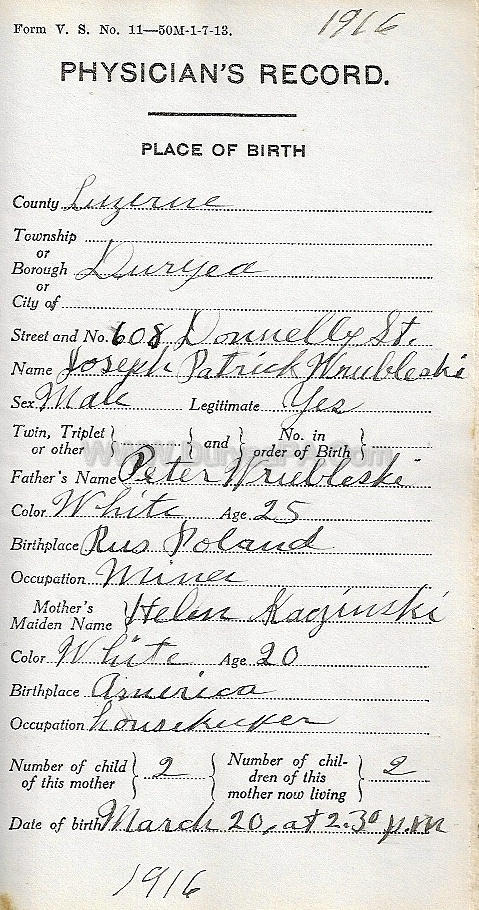 Form V. S. No. 11—50M-1-7-13.
1916
PHYSICIAN'S RECORD.
PLACE OF BIRTH
County Luzerne
Township
or
Borough Duryea
or
City of
Street and No. 608 Donnelly St.
Name Joseph Patrick Wrubleski
Sex Male Legitimate Yes
Twin, Triplet or other } { and { No. in order of Birth }
Father's Name Peter Wrubleski
Color White Age 25
Birthplace Rus Poland
Occupation Miner
Mother's Maiden Name } Helen Kaczinski
Color White Age 20
Birthplace America
Occupation housekeeper
Number of child of this mother } 2 { Number of children of this mother now living } 2
Date of birth March 20, at 2.30 p.m
1916